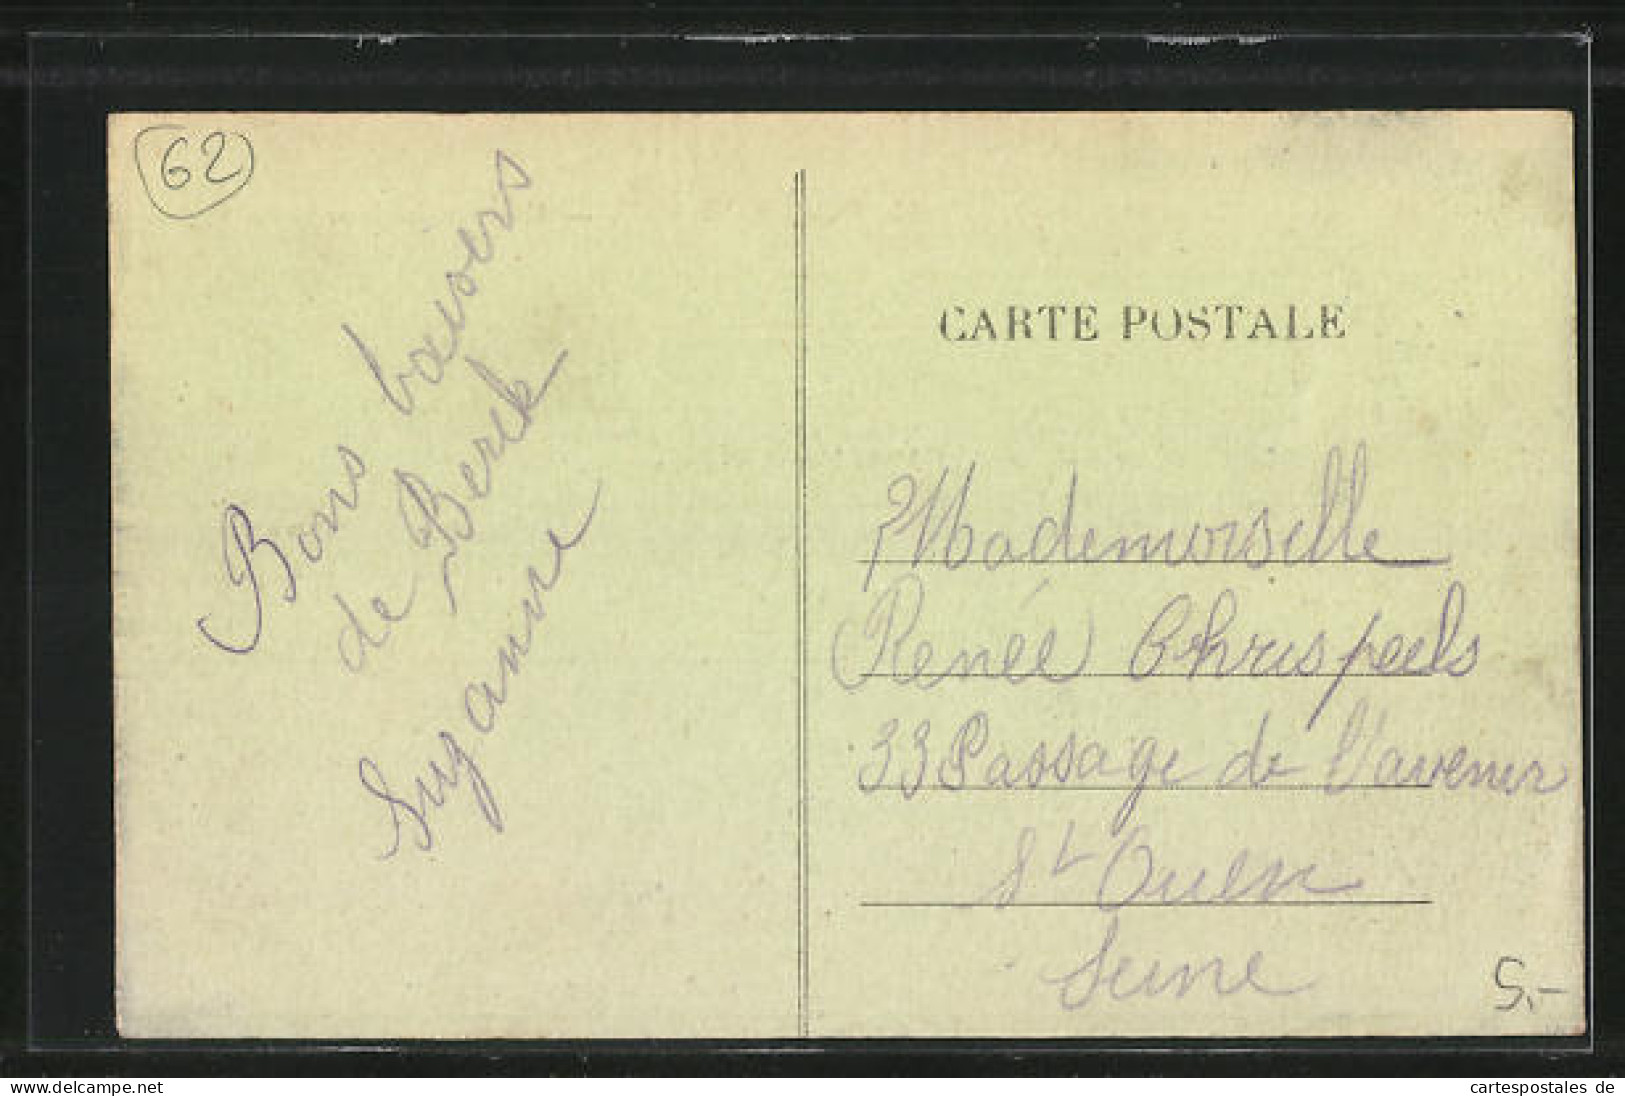 62
Bons baisers
de Berck
Suzanne
CARTE POSTALE
Mademoiselle
Renée Chrispeels
33 Passage de l'avenir
St Ouen
Seine
5.-
www.delcampe.net
cartespostales de